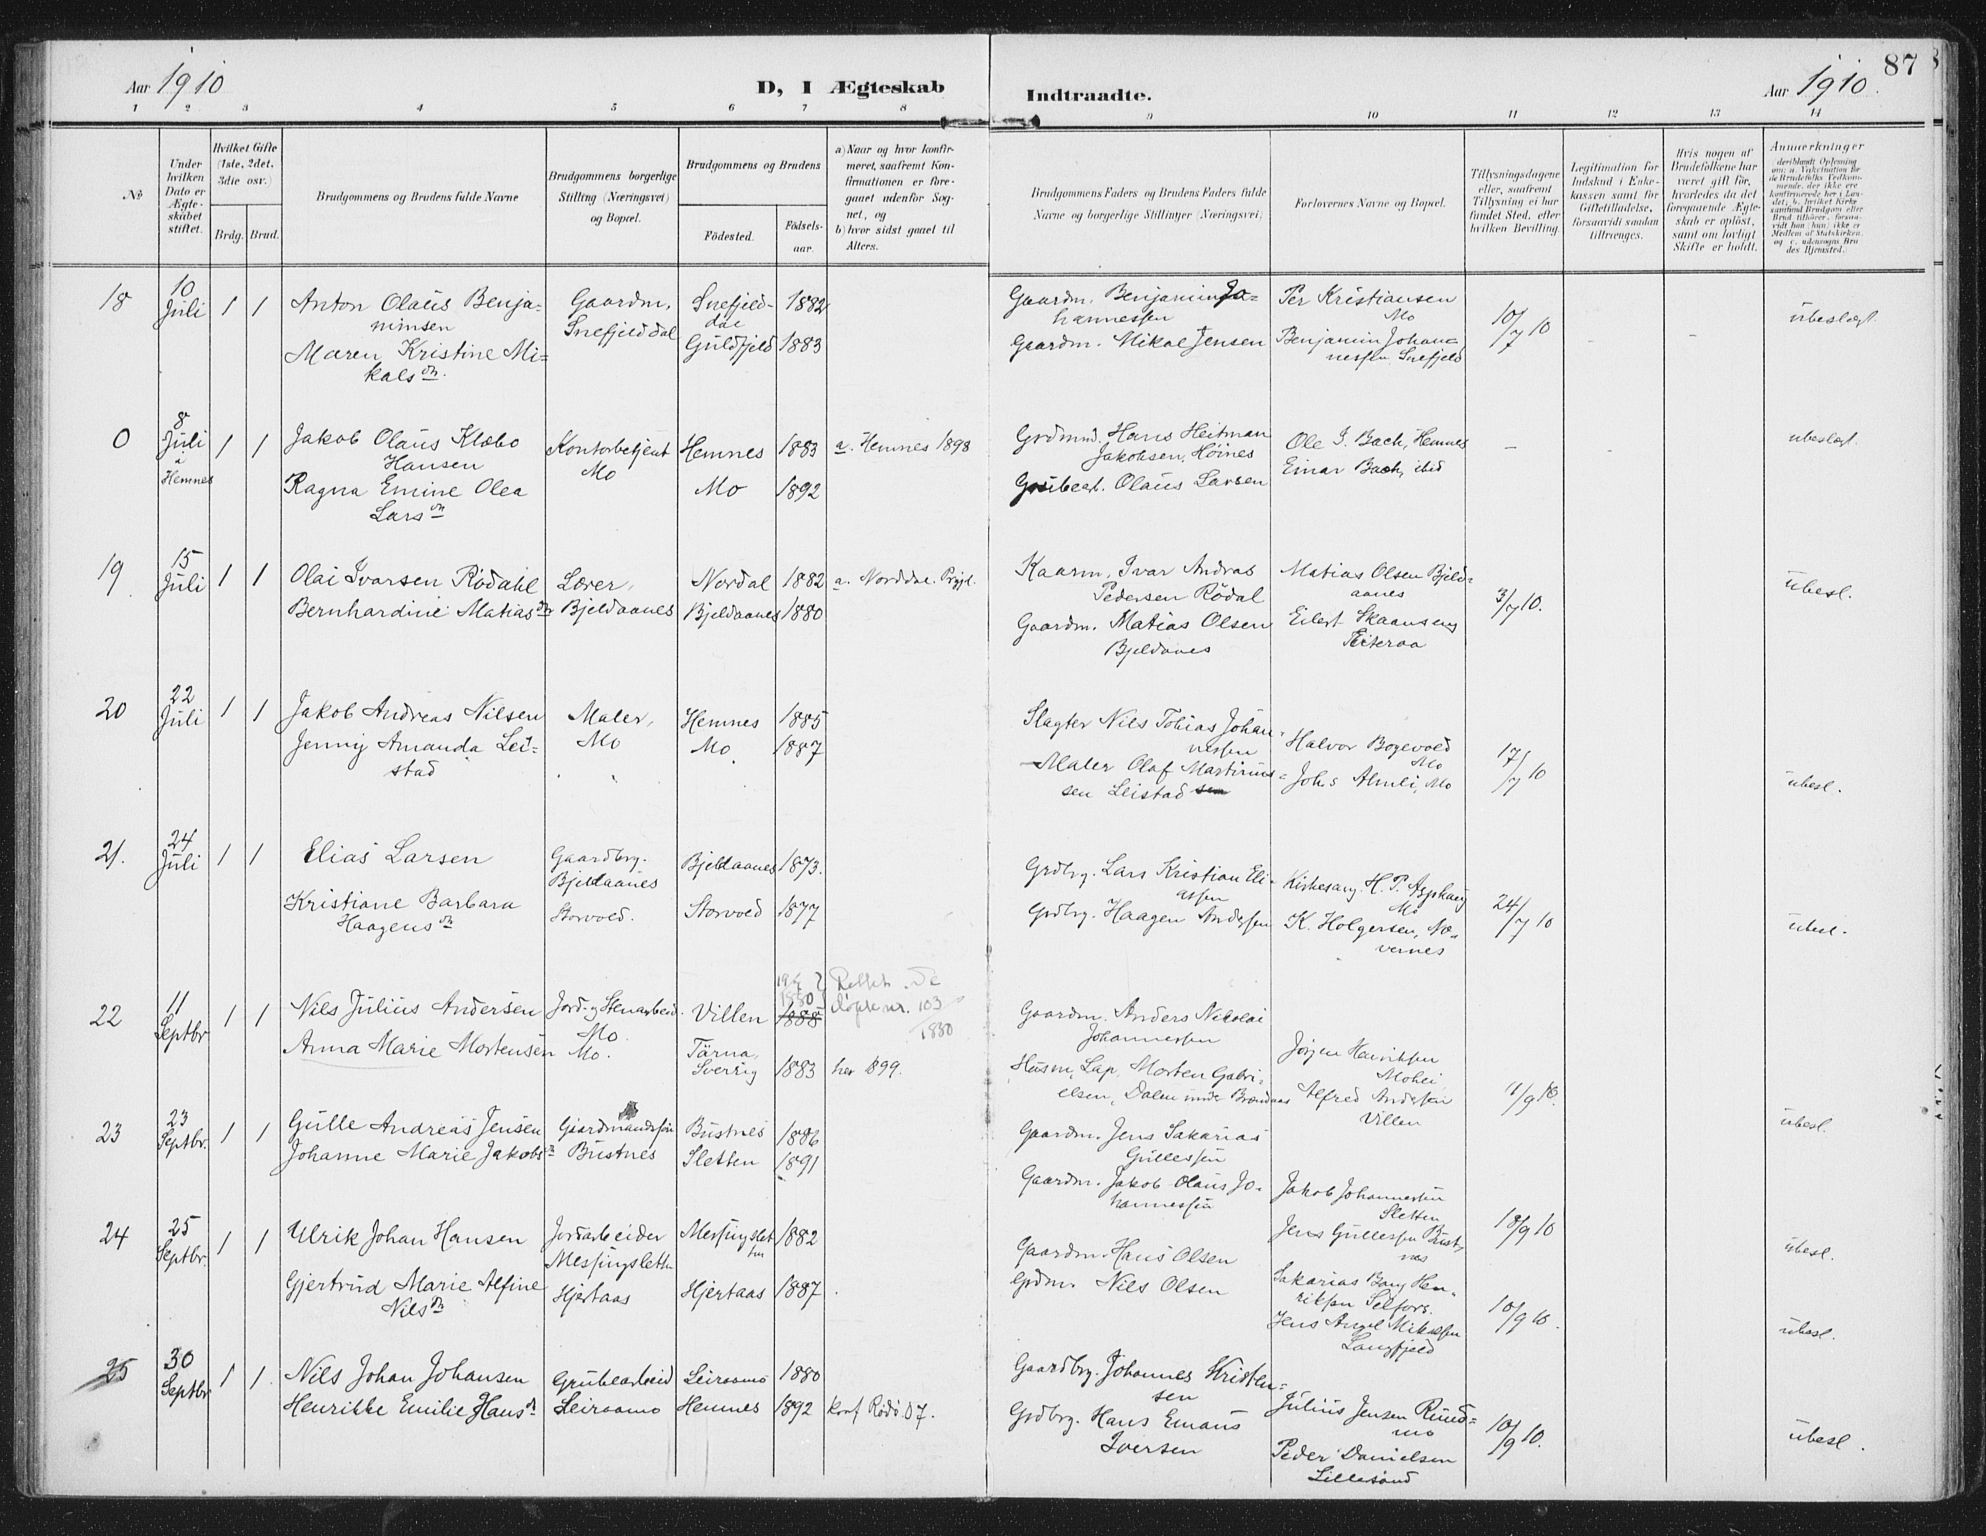 Aar 1910
D, I Ægteskab
Indtraadte.
Aar 1910.
87
1 2 3 4 5 6 7 8 9 10 11 12 13 14
№
Under hvilken Dato er Ægteskabet stiftet.
Hvilket Gifte (1ste, 2det, 3die osv.)
Brdg. Brud.
Brudgommens og Brudens fulde Navne
Brudgommens borgerlige Stilling (Næringsvei) og Bopæl.
Brudgommens og Brudens
Fødested.
Fødsels-aar.
a) Naar og hvor konfirmeret, saafremt Konfirmationen er foregaaet udenfor Sognet, og
b) hvor sidst gaaet til Alters.
Brudgommens Faders og Brudens Faders fulde Navne og borgerlige Stillinger (Næringsvei)
Forlovernes Navne og Bopæl.
Tillysningsdagene eller, saafremt Tillysning ei har fundet Sted, efter hvilken Bevilling.
Legitimation for Indskud i Enkekassen samt for Giftetilladelse, forsaavidt saadan tiltrænges.
Hvis nogen af Brudefolkene har været gift før, hvorledes da det foregaaende Ægteskab er opløst, samt om lovligt Skifte er holdt.
Anmerkninger
18 10 Juli 1 1
Anton Olaus Benja-
minsen
Maren Kristine Mi-
kalsdtr.
Gaardm.
Snefjelddal
Snefjeld-
dal 1882
Guldfjeld 1883
Gaardm. Benjamin Jo-
hannessen
Gaardm. Mikal Jensen
Per Kristiansen
Mo
Benjamin Johan-
nessen Snefjeld
10/7 10
ubeslægt.
0 8 Juli i Hemnes 1 1
Jakob Olaus Klæbo
Hansen
Ragna Emine Olea
Larsdtr
Kontorbetjent
Mo
Hemnes 1883
Mo 1892
a. Hemnes 1898
Grdmd. Hans Heitman
Jakobsen, Høines
Grubearb. Olaus Larsen
Ole J. Bach, Hemnes
Einar Bach, ibid
-
ubeslægt.
19 15 Juli 1 1
Olai Ivarsen Rødahl
Bernhardine Matiasdtr
Lærer,
Bjeldaanes
Nordal 1882
Bjeldaanes 1880
a. Norddal Prgjl.
Kaarm. Ivar Andras
Pedersen Rødal
Gaardm. Matias Olsen
Bjeldanes
Matias Olsen Bjeld-
aanes
Eilert Skaansen
3/7 10.
ubesl.
20 22 Juli 1 1
Jakob Andreas Nilsen
Jenny Amanda Lei-
stad
Maler,
Mo
Hemnes 1885
Mo 1887
Slagter Nils Tobias Johan-
nessen
Maler Olaf Martinus-
sen Leistad
Halvor Bogevold
Mo
Johs Almli, Mo
17/7 10
ubesl.
21. 24 Juli 1 1
Elias Larsen
Kristiane Barbara
Haagensdtr
Gaardbrg.
Bjeldaanes
Storvold.
Bjeldaanes 1873.
Storvold 1877
Grdbrg. Lars Kristian Eli-
assen
Grdbrg. Haagen Andersen
Kirkesang. H. P. Asphaug
Mo
K. Holgersen,
24/7 10
ubesl.
22 11 Septbr 1 1
Nils Julius Andersen
Anna Marie Mortensen
Jord- og Stenarbeid.
Mo.
Mo.
Villen 1888 1880
Tärna,
Sverrig 1883
103
1880
her 1899.
Gaardm. Anders Nikolai
Johannessen
Husm, Lap. Morten Gabri-
elsen, Dalen under
Jørgen Henriksen
Mohei
Alfred Andersen
Villen
11/9 10.
ubesl.
23 23 Septbr. 1 1
Gulle Andreas Jensen
Johanne Marie Jakobsdtr
Gaardmandssøn
Bustnes
Bustnes 1886
Sletten 1891
Gaardm. Jens Sakarias
Gullessen
Gaardm. Jakob Olaus Jo-
hannessen
Jakob Johannessen
Sletten
Jens Gullessen Bust-
nes
18/9 10
ubesl.
24 25 Septbr. 1 1
Ulrik Johan Hansen
Gjertrud Marie Alfine
Nilsdtr
Jordarbeider
Messingsletten
Hjertaas
Messingslet-
ten 1882
Hjertaas 1887
Gaardm. Hans Olsen
Grdm. Nils Olsen
Sakarias Bang Hen-
riksen Selfors.
Jens Angel Mikalsen
Langfjeld
18/9 10.
ubesl.
25 30 Septbr 1 1
Nils Johan Johansen
Henrikke Emilie Hansdtr
Grubearbeid
Leiraamo
Leiraamo 1880
Hemnes 1892
konf Rødø 07.
Gaardbrg. Johannes Kristen-
sen
Grdbrg. Hans Emaus
Iversen
Julius Jensen Ruud-
mo
Peder Danielsen
Lillesund
18/9 10.
ubesl.